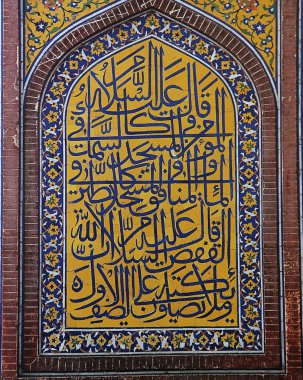 قال عليه السلام
المؤمن في المسجد كالسمك في
الماء والمنافق في المسجد كالطير في
القفص عليه السلام ان الله
وملائكته يصلون على الصف الاول